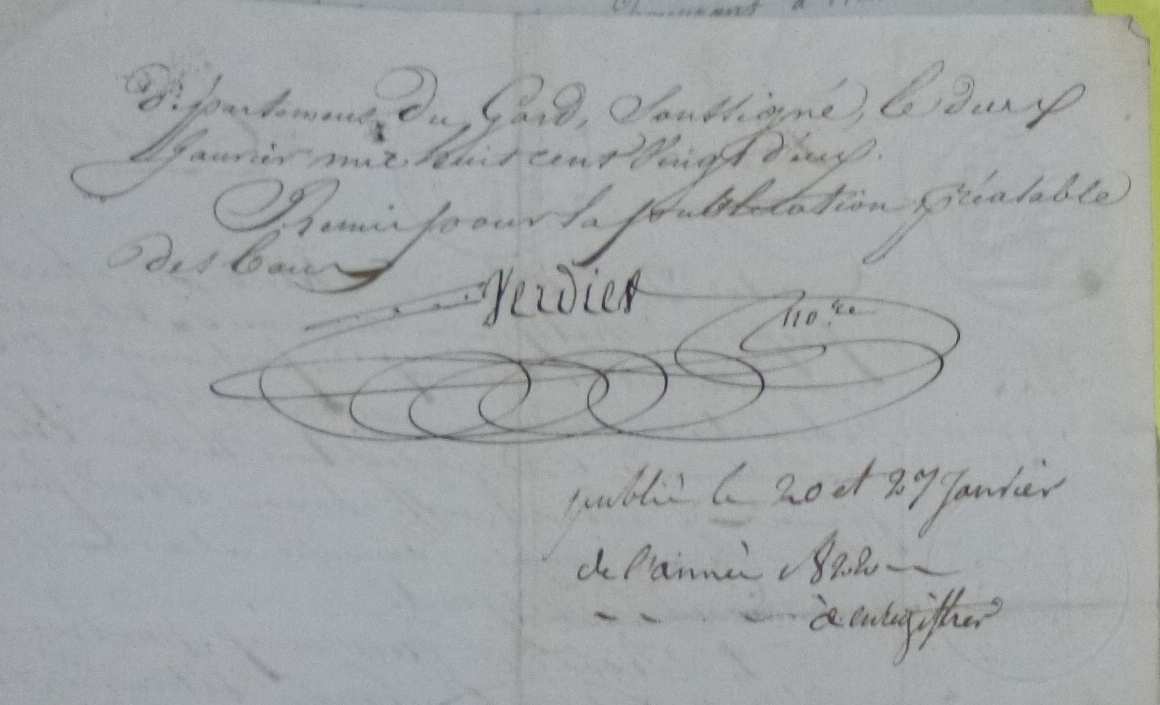 département du Gard, Soussigné, le deux
Janvier mil huit cent vingt deux.
Remis pour la publication préalable
des bans
Verdier
no.re
publié le 20 et 27 Janvier
de l'année 1822
à enregistrer